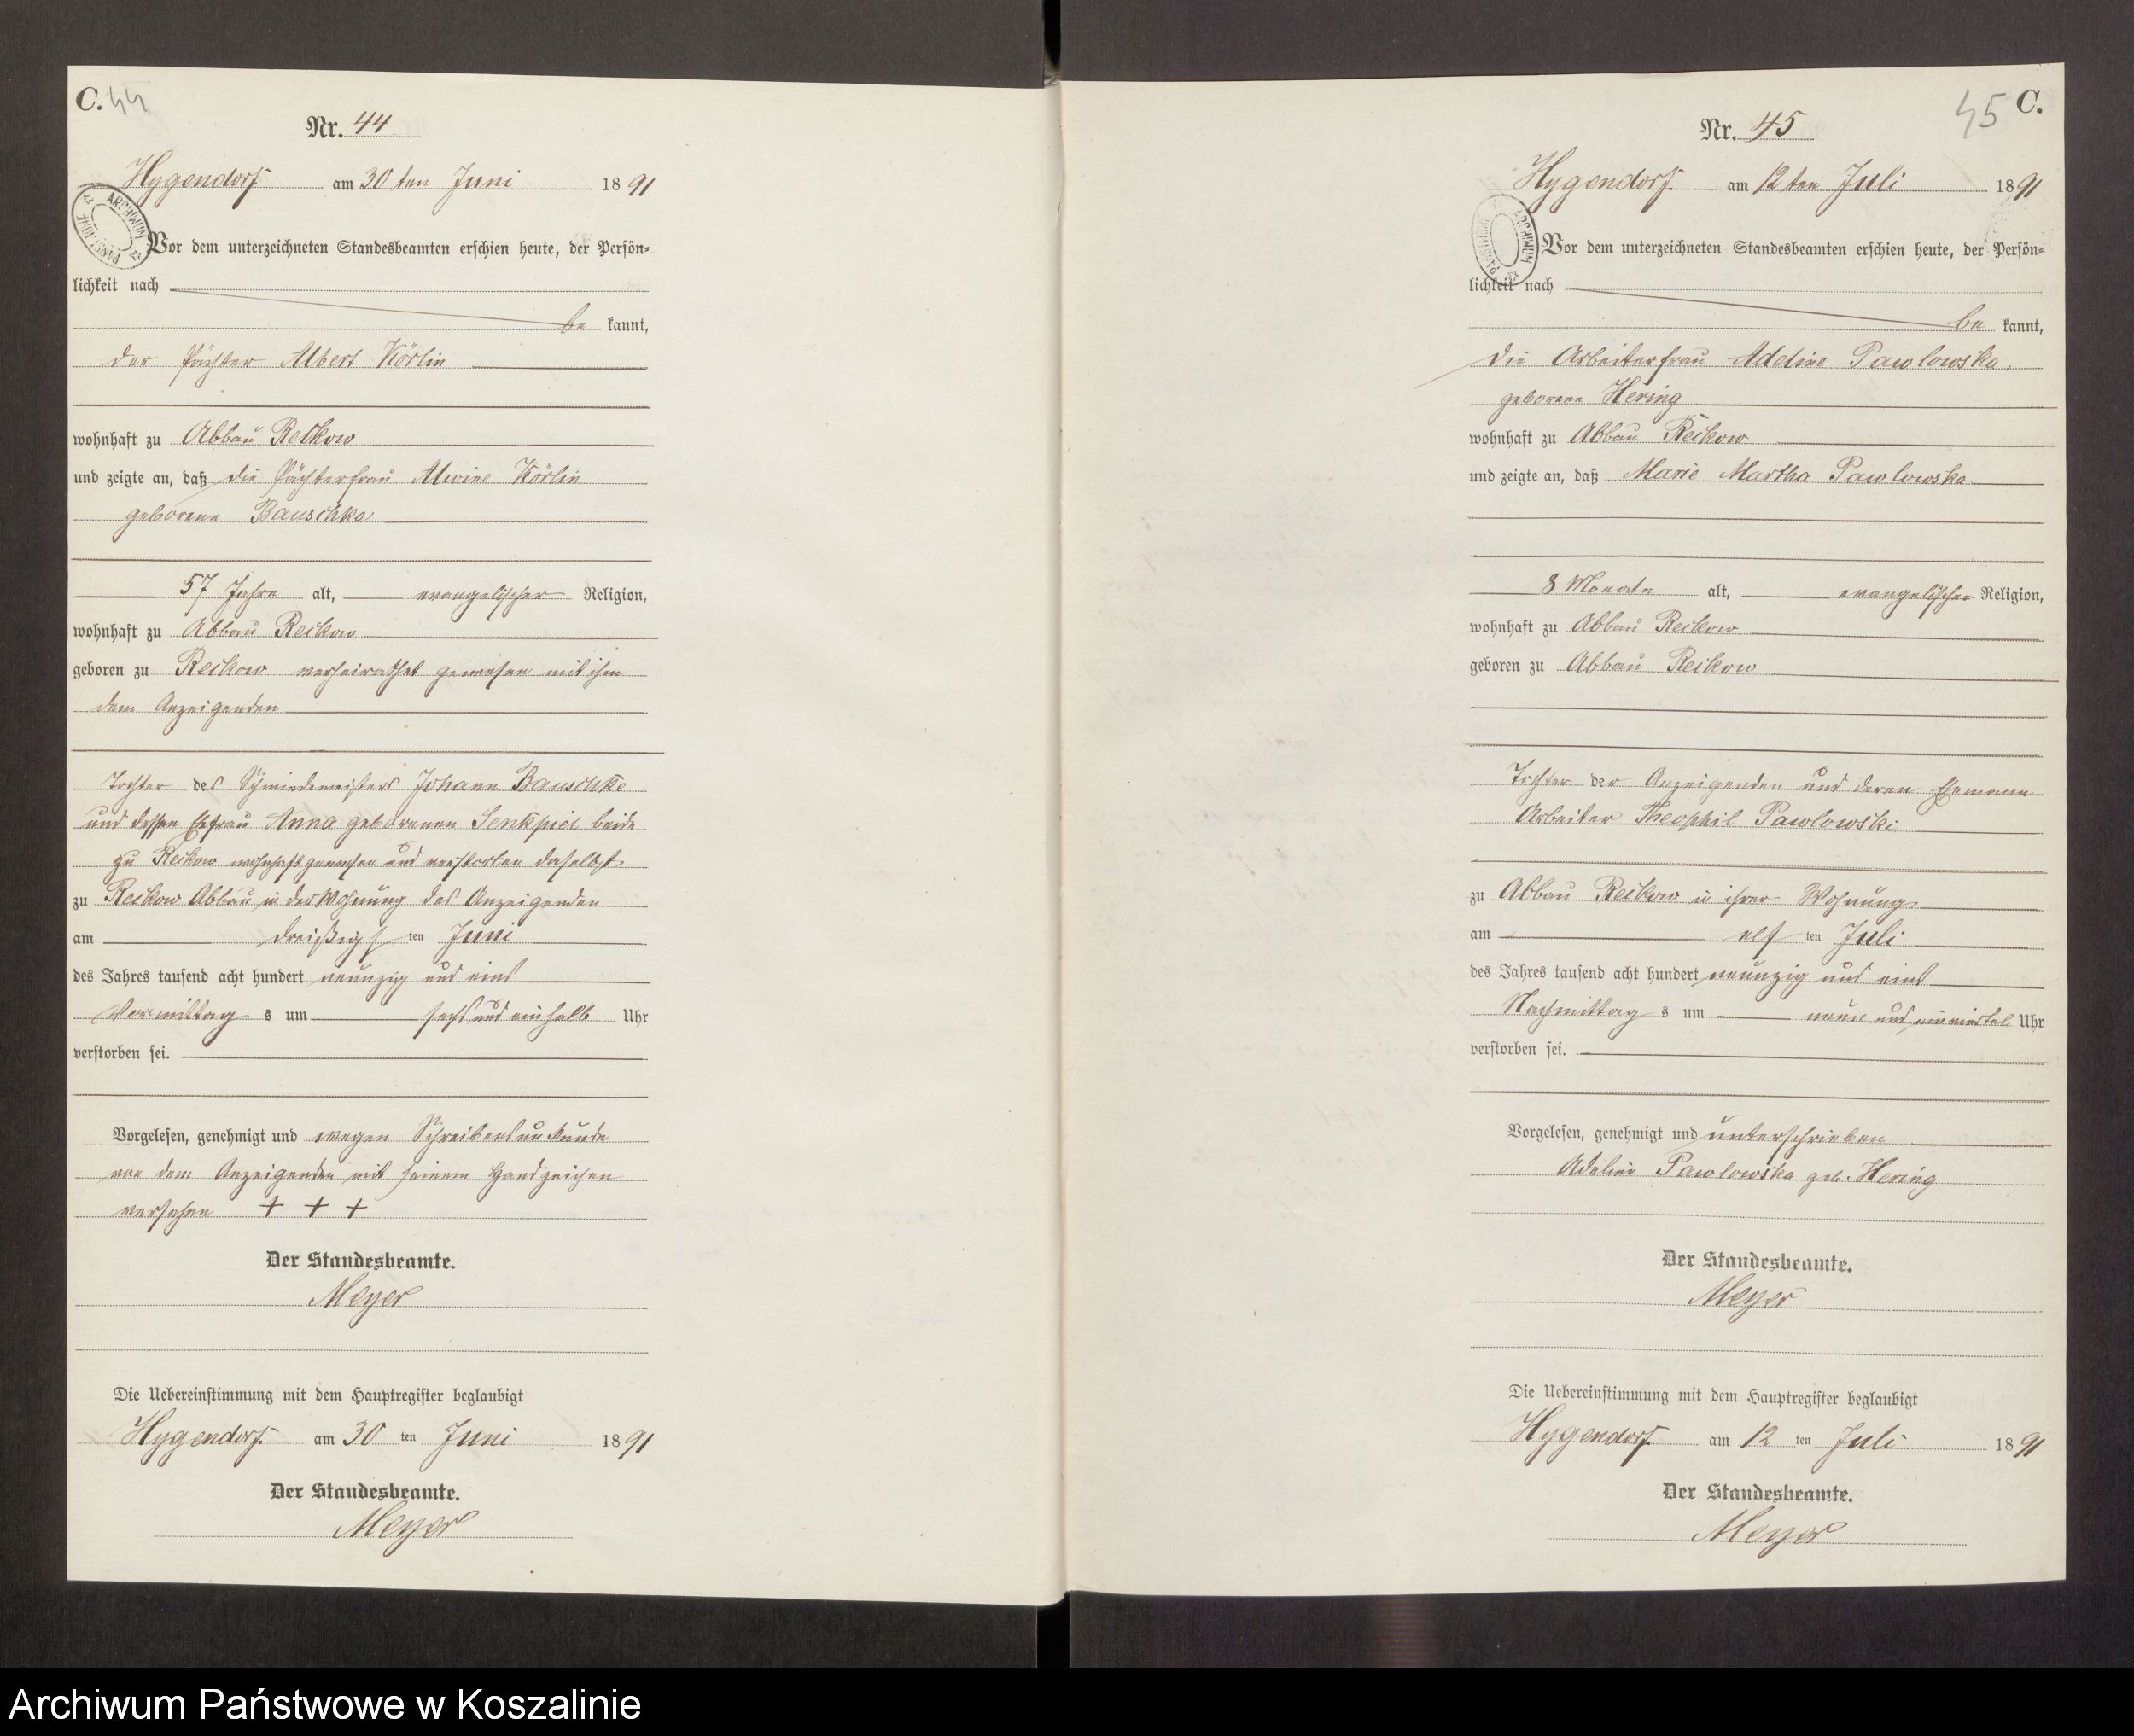 C. 44
Nr. 44
Hygendorf am 30 ten Juni 1891
ARCHIWUM PAŃSTWOWE
Vor dem unterzeichneten Standesbeamten erschien heute, der Persön-
lichkeit nach
be kannt,
der Pächter Albert Körlin
wohnhaft zu Abbau Reckow
und zeigte an, daß die Pächterfrau Alwine Körlin
geborene Bauschke
57 Jahre alt, evangelischer Religion,
wohnhaft zu Abbau Reckow
geboren zu Reckow verheirathet gewesen mit ihm
dem Anzeigenden
Tochter des Schmiedemeisters Johann Bauschke
und dessen Ehefrau Anna geborenen Senkpiel beide
zu Reckow wohnhaft gewesen und verstorben daselbst
zu Reckow Abbau in der Wohnung des Anzeigenden
am dreißigs ten Juni
des Jahres tausend acht hundert neunzig und eins
Vormittag s um sechs und einhalb Uhr
verstorben sei.
Vorgelesen, genehmigt und wegen Schreibensunkunde
von dem Anzeigenden mit seinem Handzeichen
versehen + + +
Der Standesbeamte.
Meyer
Die Uebereinstimmung mit dem Hauptregister beglaubigt
Hygendorf am 30 ten Juni 1891
Der Standesbeamte.
Meyer
45 C.
Nr. 45
Hygendorf am 12 ten Juli 1891
ARCHIWUM PAŃSTWOWE
Vor dem unterzeichneten Standesbeamten erschien heute, der Persön-
lichkeit nach
be kannt,
die Arbeiterfrau Adeline Pawlowska,
geborene Hering
wohnhaft zu Abbau Reckow
und zeigte an, daß Marie Martha Pawlowska
8 Monate alt, evangelischer Religion,
wohnhaft zu Abbau Reckow
geboren zu Abbau Reckow
Tochter der Anzeigenden und deren Ehemann
Arbeiter Theophil Pawlowski
zu Abbau Reckow in ihrer Wohnung
am elf ten Juli
des Jahres tausend acht hundert neunzig und eins
Nachmittag s um neun und einviertel Uhr
verstorben sei.
Vorgelesen, genehmigt und unterschrieben
Adeline Pawlowska geb. Hering
Der Standesbeamte.
Meyer
Die Uebereinstimmung mit dem Hauptregister beglaubigt
Hygendorf am 12 ten Juli 1891
Der Standesbeamte.
Meyer
Archiwum Państwowe w Koszalinie